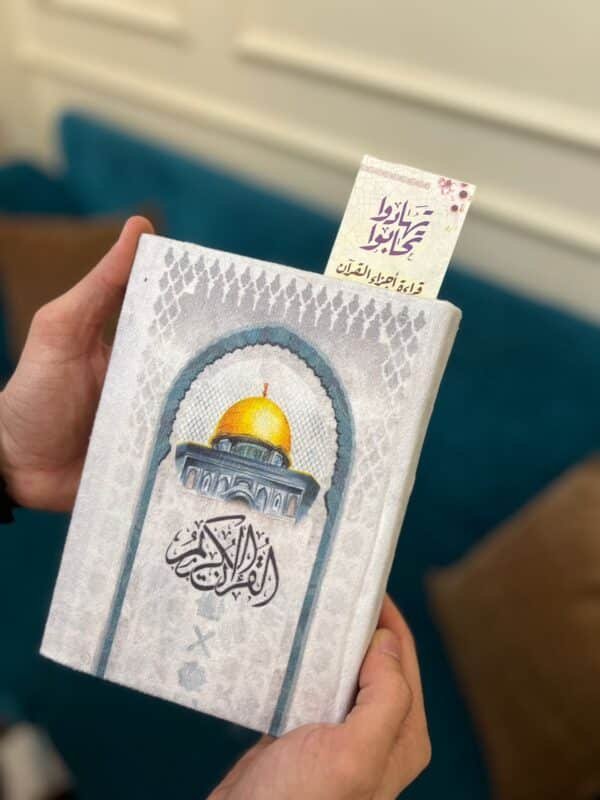 تهادوا
تحابوا
قراءة أجزاء القرآن
القرآن الكريم